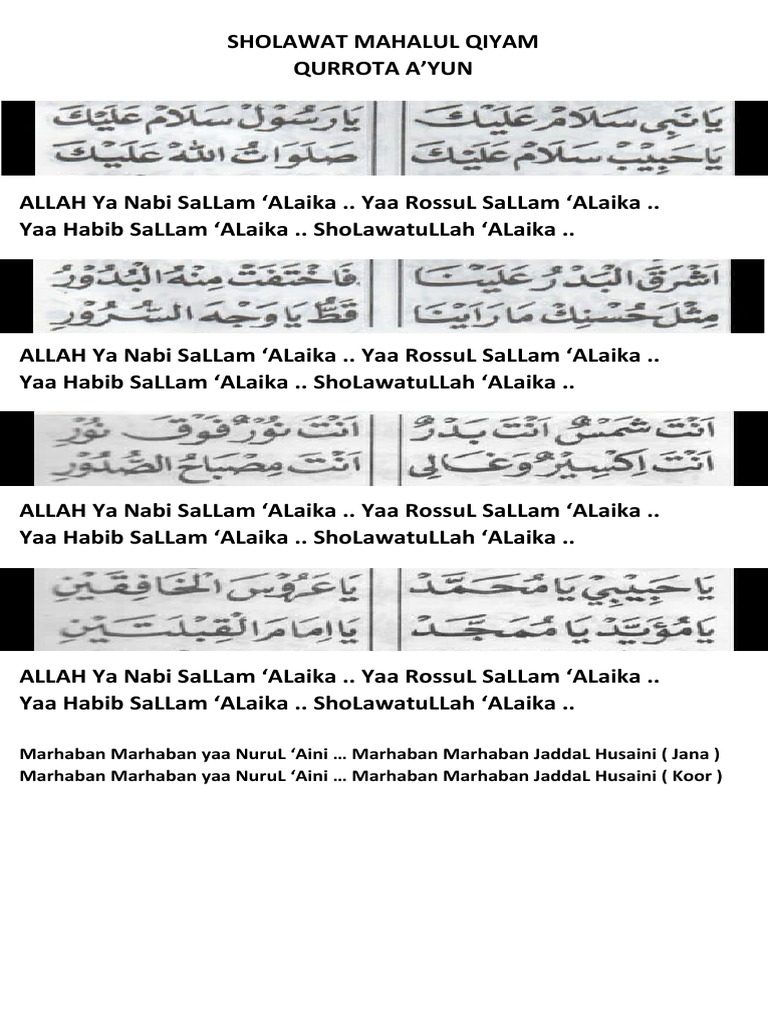 SHOLAWAT MAHALUL QIYAM
QURROTA A’YUN
يَا نَبِى سَلَامْ عَلَيْكَ يَا رَسُوْلْ سَلَامْ عَلَيْكَ
يَا حَبِيْبْ سَلَامْ عَلَيْكَ صَلَوَاتُ اللهْ عَلَيْكَ
ALLAH Ya Nabi SaLLam ‘ALaika .. Yaa RossuL SaLLam ‘ALaika ..
Yaa Habib SaLLam ‘ALaika .. ShoLawatuLLah ‘ALaika ..
اَشْرَقَ الْبَدْرُ عَلَيْنَا فَاخْتَفَتْ مِنْهُ الْبُدُوْرُ
مِثْلَ حُسْنِكْ مَا رَاَيْنَا قَطُّ يَا وَجْهَ السُّرُوْرِ
ALLAH Ya Nabi SaLLam ‘ALaika .. Yaa RossuL SaLLam ‘ALaika ..
Yaa Habib SaLLam ‘ALaika .. ShoLawatuLLah ‘ALaika ..
اَنْتَ شَمْسٌ اَنْتَ بَدْرٌ اَنْتَ نُوْرٌ فَوْقَ نُوْرْ
اَنْتَ اِكْسِيْرٌ وَغَالِى اَنْتَ مِصْبَاحُ الصُّدُوْرِ
ALLAH Ya Nabi SaLLam ‘ALaika .. Yaa RossuL SaLLam ‘ALaika ..
Yaa Habib SaLLam ‘ALaika .. ShoLawatuLLah ‘ALaika ..
يَا حَبِيْبِيْ يَا مُحَمَّدْ يَا عَرُوْسَ الْخَافِقَيْنِ
يَا مُؤَيَّدْ يَا مُمَجَّدْ يَا اِمَامَ الْقِبْلَتَيْنِ
ALLAH Ya Nabi SaLLam ‘ALaika .. Yaa RossuL SaLLam ‘ALaika ..
Yaa Habib SaLLam ‘ALaika .. ShoLawatuLLah ‘ALaika ..
Marhaban Marhaban yaa NuruL ‘Aini … Marhaban Marhaban JaddaL Husaini ( Jana )
Marhaban Marhaban yaa NuruL ‘Aini … Marhaban Marhaban JaddaL Husaini ( Koor )